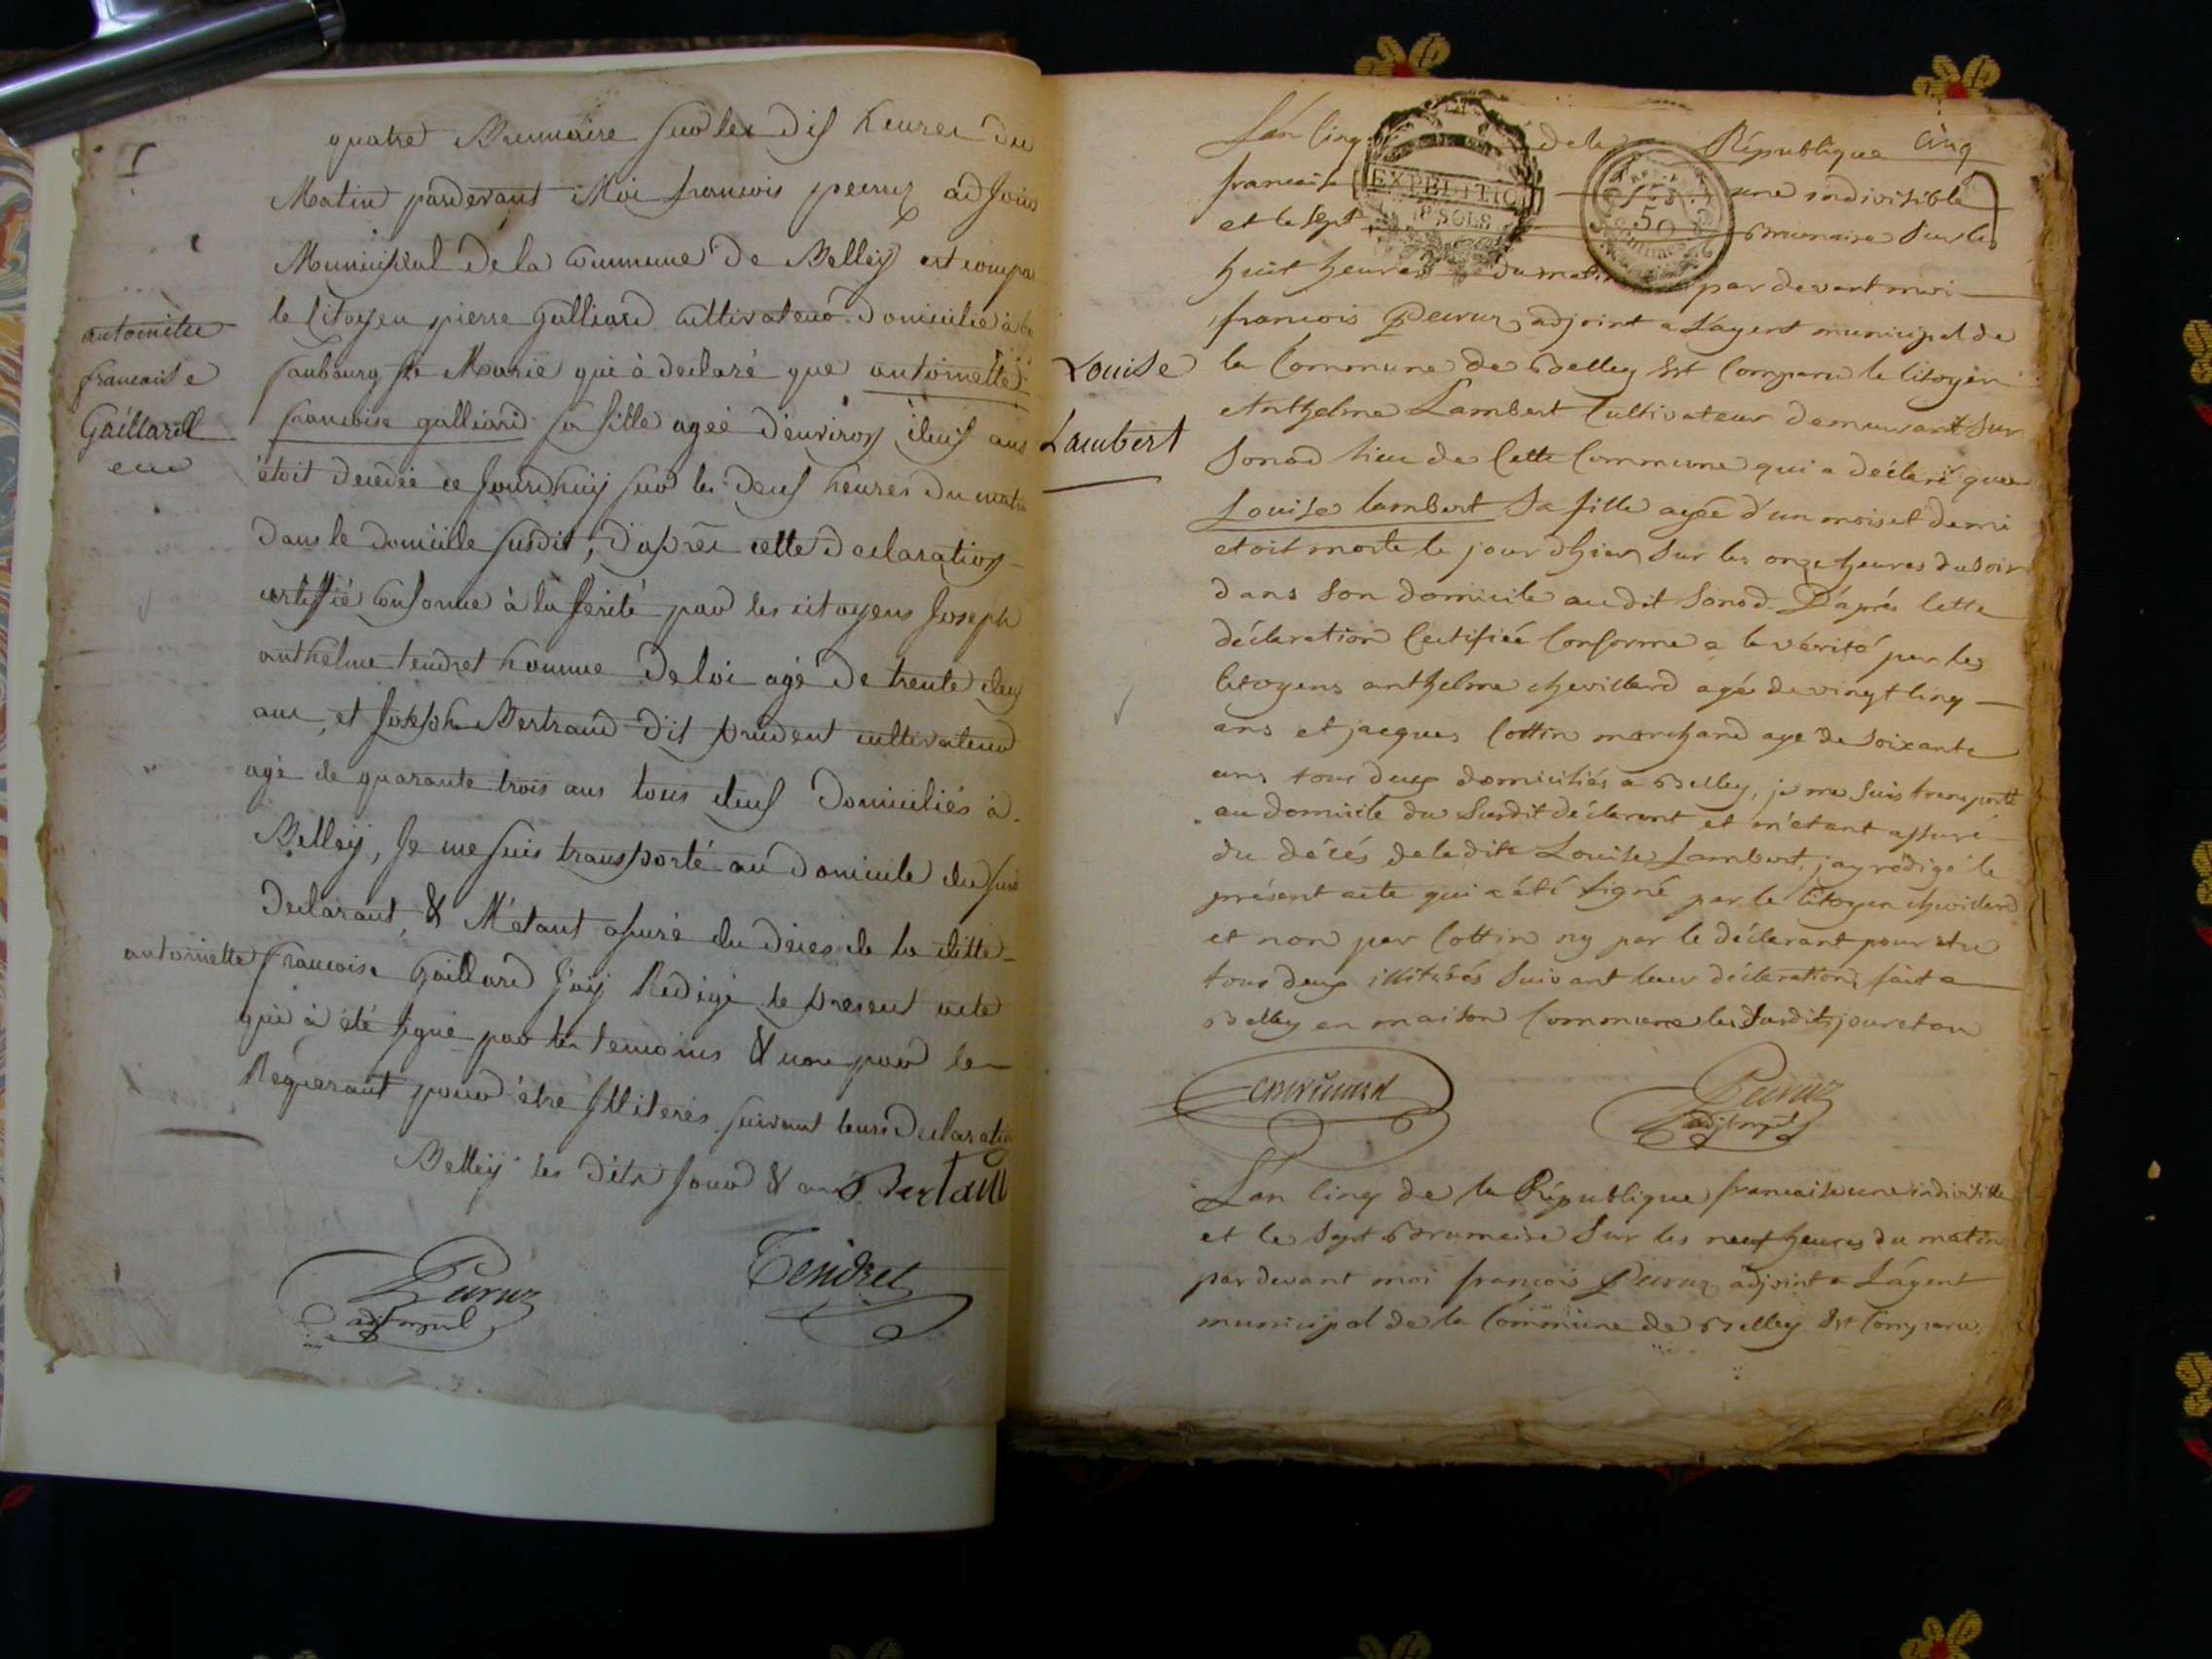 quatre Brumaire sur les dix heures du
Matin pardevant Moi francois peruz adjoint
Municipal de la commune de Belley est compa
le Citoyen pierre galliard cultivateur domicilié à
faubourg ste Marie qui à declaré que antoinette
francoise galliard sa fille ageé d'environ deux ans
étoit decedée ce jourdhuij sur les deux heures du matin
dans le domicile susdit, d'après cette declaration
certiffié conforme à la verité par les citoyens Joseph
anthelme tendret homme de loi agé de trente deux
ans, et Joseph Bertrand dit prudent cultivateur
agé de quarante trois ans tous deux domiciliés à
Belley, Je me suis transporté au domicile du susd
declarant, & M'étant assuré du déces de la ditte
antoinette francoise Gaillard J'aij Redigé le present acte
qui à été signé par les temoins & non par le
Réquerant pour être Illiterés suivant leurs declaration
Belley les dits jour & an
Peruz
adj mpal
Tendret
antoinette
francoise
Gaillard
L'an cinq de la République cinq
francaise une indivisible
et le sept Brumaire sur les
huit heures du matin par devant moi
francois Peruz adjoint a L'agent municipal de
la Commune de Belley Est Comparu le Citoyen
Anthelme Lambert Cultivateur demeurant sur
Sonod lieu de Cette Commune qui a déclaré que
Louise lambert Sa fille agée d'un mois et demi
etoit morte le jour dhier sur les onze heures du soir
dans son domicile audit Sonod. D'aprés Cette
déclaration Certifiée Conforme a la vérité par les
Citoyens anthelme chevillard agé de vingt cinq
ans et jacques Cottin marchand agé de soixante
ans tous deux domiciliés a Belley, je me suis transporté
au domicile du susdit déclarant et m'etant assuré
du décés de la dite Louise Lambert, j'ay rédigé le
présent acte qui a été signé par le Citoyen chevillard
et non par Cottin ny par le déclarant pour etre
tous deux illitérés suivant leur déclaration, fait a
Belley en maison Commune les susdits jour et an
Peruz
adj mpal
L'an Cinq de la République francaise une indivisible
et le sept Brumaire sur les neuf heures du matin
pardevant moi francois Peruz adjoint a L'agent
municipal de la Commune de Belley Est Comparu
Louise
Lambert
EXPEDITION
18 SOLS
50